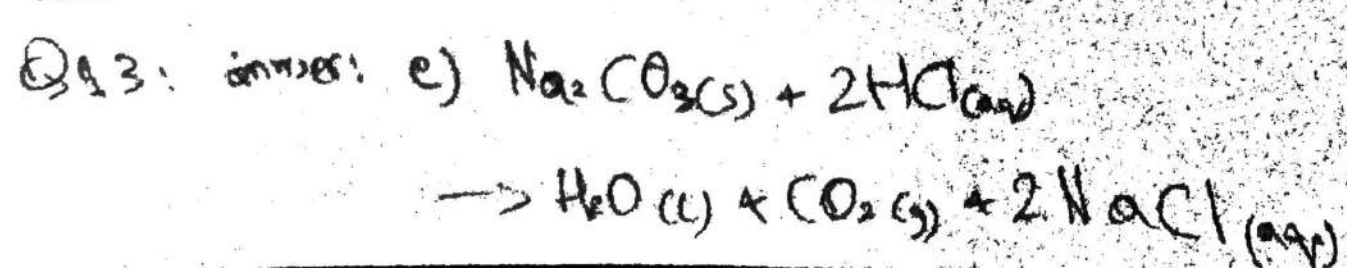 Q13: answer: e) Na₂CO₃(s) + 2HCl(aq)
→ H₂O(l) + CO₂(g) + 2NaCl(aq)